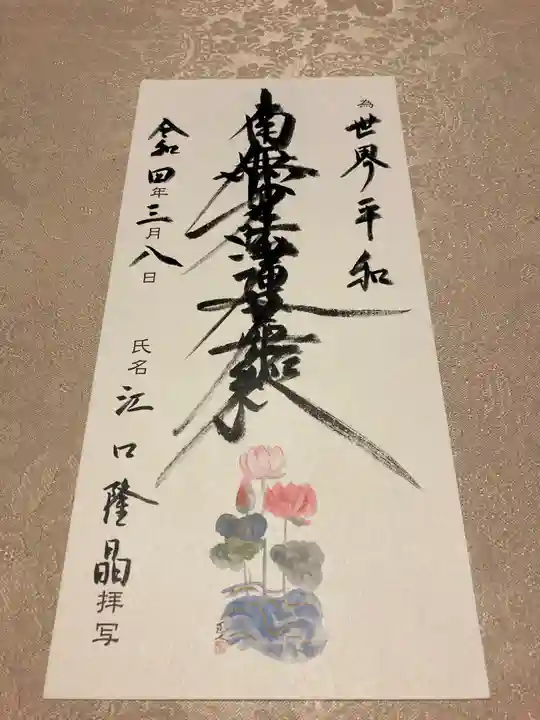 為世界平和
南無妙法蓮華経
令和四年三月八日
氏名江口隆晶拝写